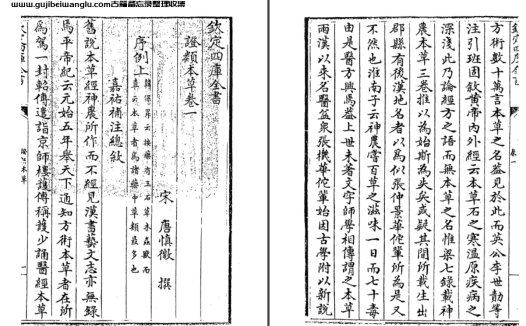 www.gujibeiwanglu.com古籍备忘录整理收集
欽定四庫全書
證類本草卷一
宋 唐慎微 撰
序例上
韓保昇云按藥有玉石草木蟲獸而
直云本草者為諸藥中草類最多也
嘉祐補注總敘
舊說本草經神農所作而不經見漢書藝文志亦無錄
焉平帝紀云元始五年舉天下通知方術本草者在所
為駕一封軺傳遣詣京師樓護傳稱護少誦醫經本草
方術數十萬言本草之名蓋見於此而英公李世勣等
注引班固敘黃帝內外經云本草石之寒溫原疾病之
深淺此乃論經方之語而無本草之名惟梁七錄載神
農本草三卷推以為始斯為失矣或疑其間所載生出
郡縣有後漢地名者以為似張仲景華佗輩所為是又
不然也淮南子云神農嘗百草之滋味一日而七十毒
由是醫方興焉蓋上世未著文字師學相傳謂之本草
兩漢以來名醫益衆張機華佗輩始因古學附以新說